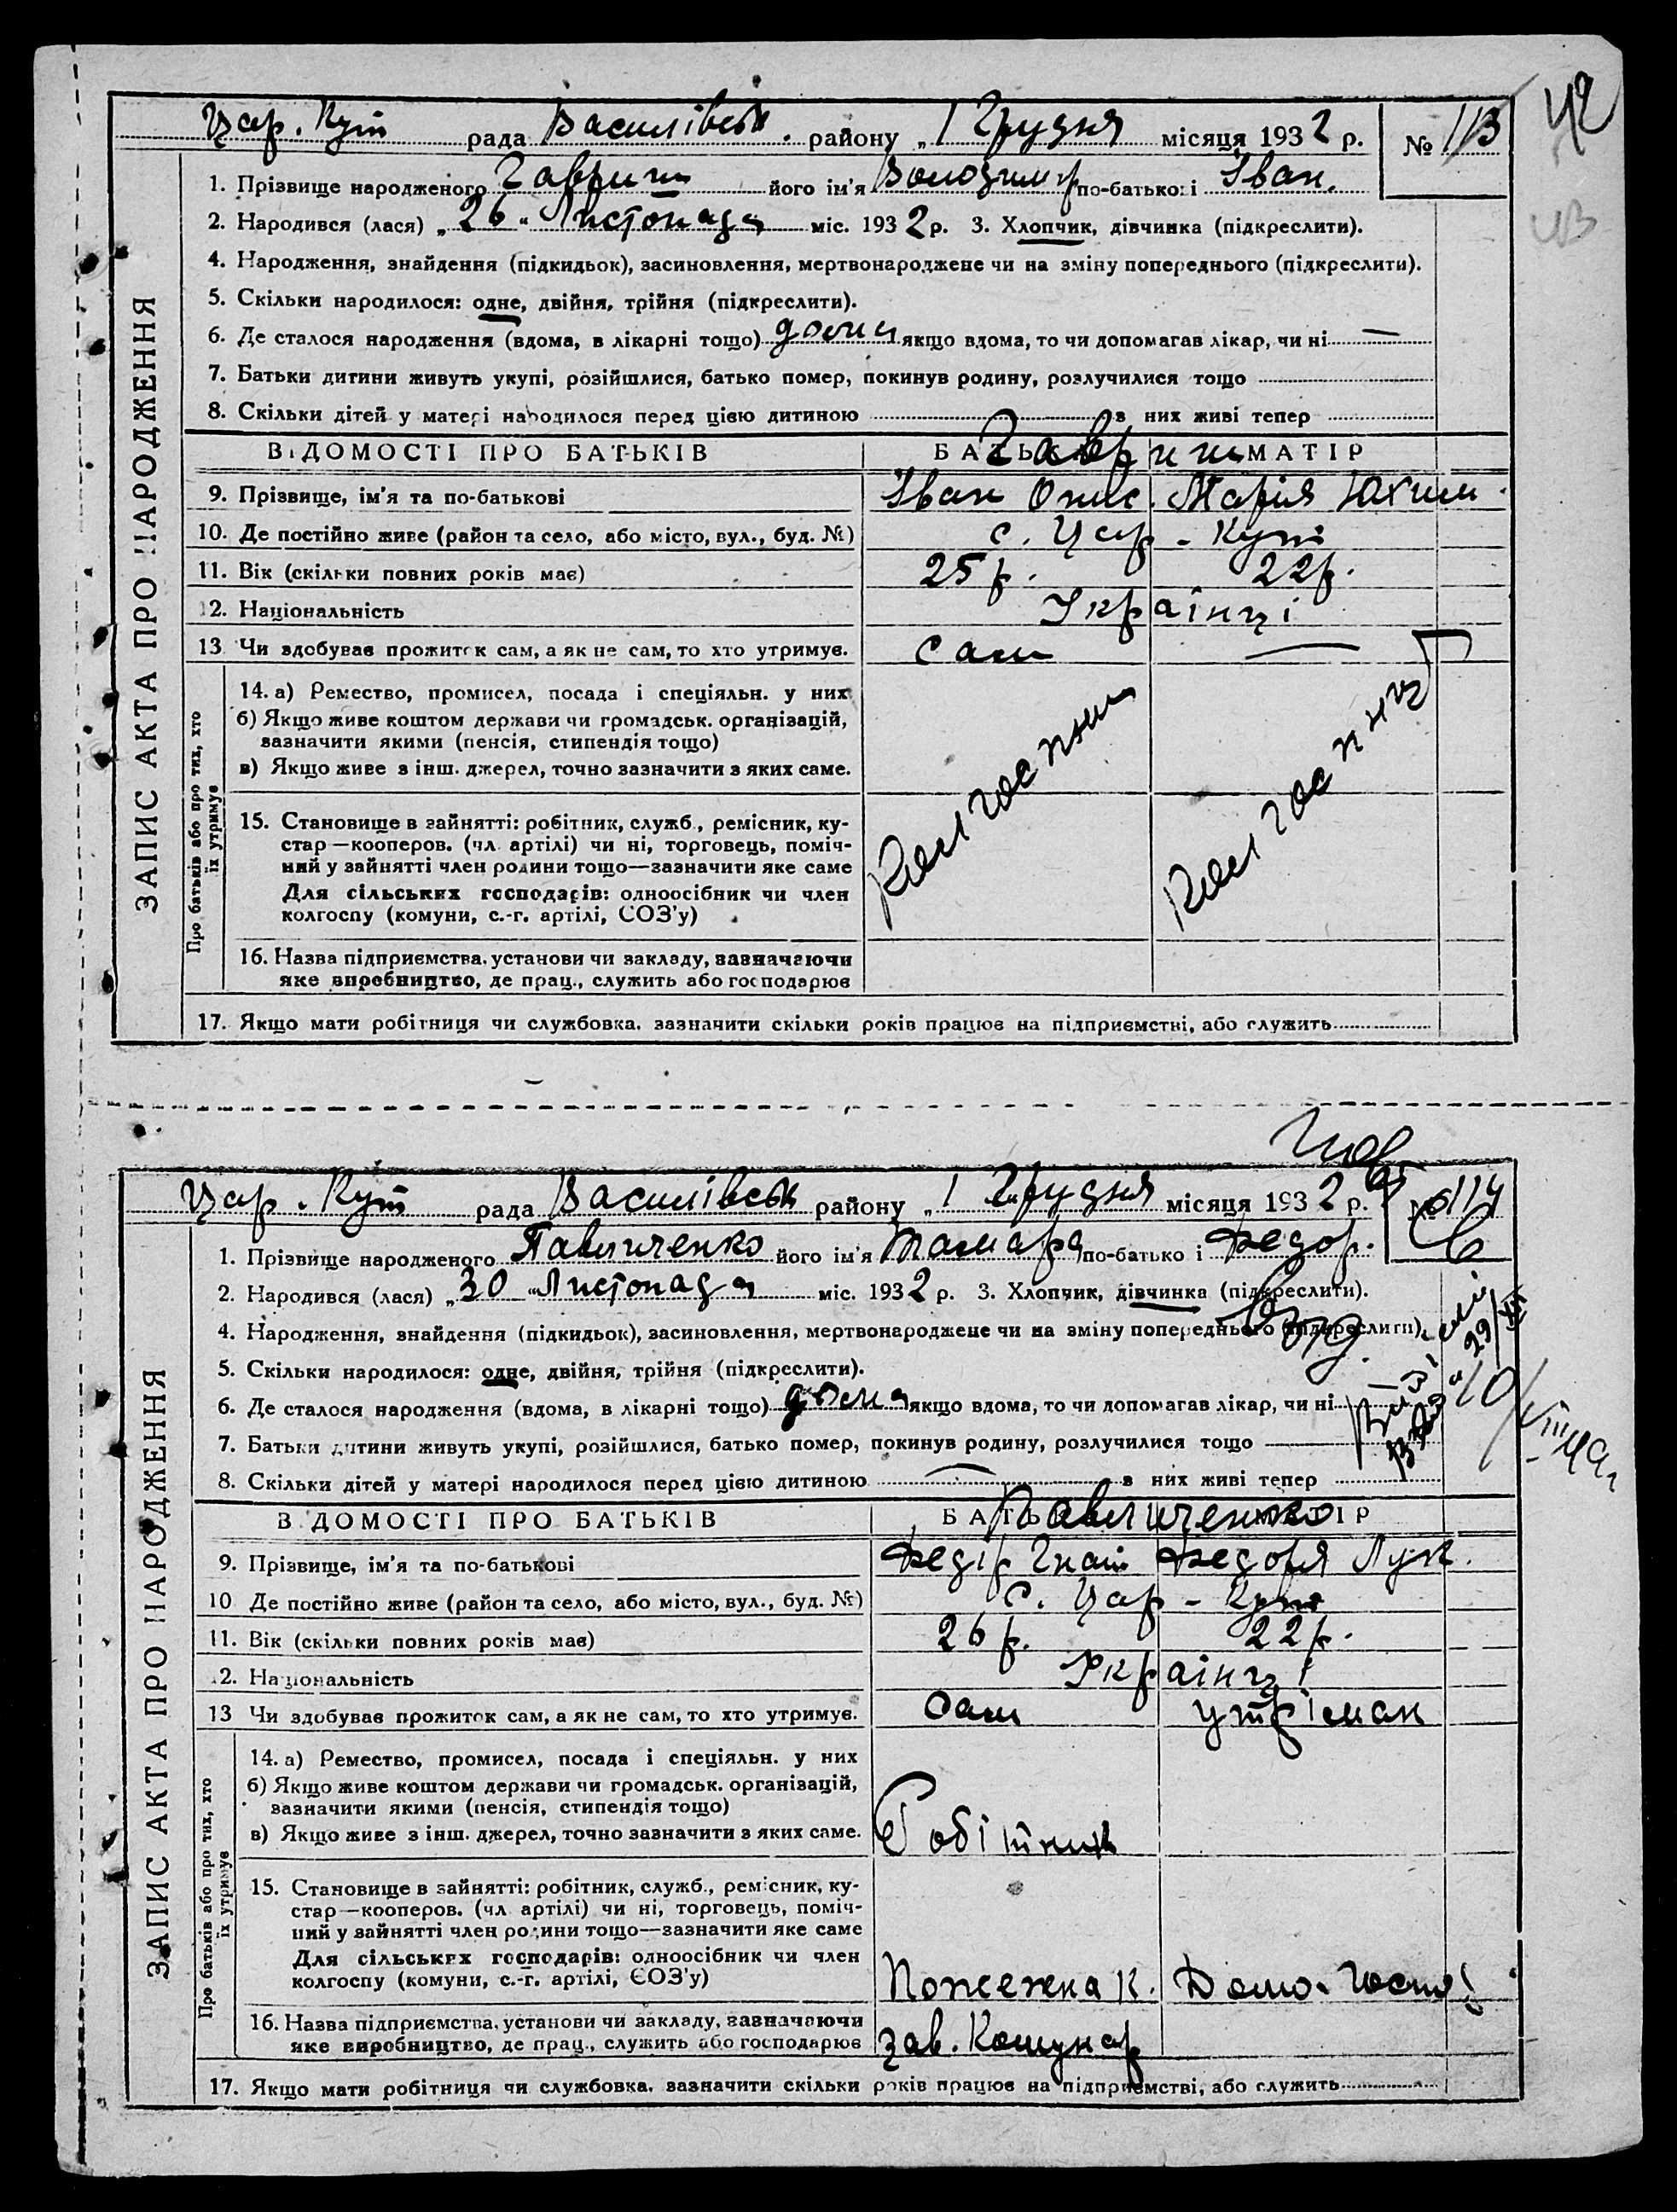 42
Цар. Кут рада Василівськ. району „1 Грудня місяця 1932 р. № 113
113
1. Прізвище народженого Гавриш його ім'я Володимир по-батькові Іван.
2. Народився (лася) „26" Листопада міс. 1932 р. 3. Хлопчик, дівчинка (підкреслити).
4. Народження, знайдення (підкидьок), засиновлення, мертвонароджене чи на зміну попереднього (підкреслити).
5. Скільки народилося: одне, двійня, трійня (підкреслити).
6. Де сталося народження (вдома, в лікарні тощо) дома якщо вдома, то чи допомагав лікар, чи ні —
7. Батьки дитини живуть укупі, розійшлися, батько помер, покинув родину, розлучилися тощо
8. Скільки дітей у матері народилося перед цією дитиною з них живі тепер
ЗАПИС АКТА ПРО НАРОДЖЕННЯ
ВІДОМОСТІ ПРО БАТЬКІВ БАТЬКА МАТІР
Гавриш
9. Прізвище, ім'я та по-батькові Іван Онис. Марія Юхим.
10. Де постійно живе (район та село, або місто, вул., буд. №) с. Цар - Кут
11. Вік (скільки повних років має) 25 р. 22 р.
12. Національність Українці
13 Чи здобуває прожиток сам, а як не сам, то хто утримує. сам —
Про батьків або про тих, хто їх утримує
14. а) Ремество, промисел, посада і спеціяльн. у них
б) Якщо живе коштом держави чи громадськ. організацій,
зазначити якими (пенсія, стипендія тощо)
в) Якщо живе з інш. джерел, точно зазначити з яких саме.
15. Становище в зайнятті: робітник, служб., ремісник, ку-
стар—кооперов. (чл. артілі) чи ні, торговець, поміч-
ний у зайнятті член родини тощо—зазначити яке саме
Для сільських господарів: одноосібник чи член
колгоспу (комуни, с.-г. артілі, СОЗ'у)
16. Назва підприємства, установи чи закладу, зазначаючи
яке виробництво, де прац., служить або господарює
17. Якщо мати робітниця чи службовка, зазначити скільки років працює на підприємстві, або служить
Цар. Кут рада Василівськ району „1 Грудня місяця 1932 р. № 114
1. Прізвище народженого Павличенко його ім'я Тамара по-батькові Федор.
2. Народився (лася) „30" Листопада міс. 1932 р. 3. Хлопчик, дівчинка (підкреслити).
4. Народження, знайдення (підкидьок), засиновлення, мертвонароджене чи на зміну попереднього (підкреслити).
5. Скільки народилося: одне, двійня, трійня (підкреслити).
6. Де сталося народження (вдома, в лікарні тощо) дома якщо вдома, то чи допомагав лікар, чи ні
7. Батьки дитини живуть укупі, розійшлися, батько помер, покинув родину, розлучилися тощо
8. Скільки дітей у матері народилося перед цією дитиною — з них живі тепер
ЗАПИС АКТА ПРО НАРОДЖЕННЯ
ВІДОМОСТІ ПРО БАТЬКІВ БАТЬКА МАТІР
Павличенко
9. Прізвище, ім'я та по-батькові Федір Гнат Федора Лук.
10 Де постійно живе (район та село, або місто, вул., буд. №) с. Цар - Кут
11. Вік (скільки повних років має) 26 р. 22 р.
12. Національність Українці
13 Чи здобуває прожиток сам, а як не сам, то хто утримує. сам утріман
Про батьків або про тих, хто їх утримує
14. а) Ремество, промисел, посада і спеціяльн. у них
б) Якщо живе коштом держави чи громадськ. організацій,
зазначити якими (пенсія, стипендія тощо)
в) Якщо живе з інш. джерел, точно зазначити з яких саме. Робітник
15. Становище в зайнятті: робітник, служб., ремісник, ку-
стар—кооперов. (чл. артілі) чи ні, торговець, поміч-
ний у зайнятті член родини тощо—зазначити яке саме
Для сільських господарів: одноосібник чи член
колгоспу (комуни, с.-г. артілі, СОЗ'у) Пожежна к. Домо-
16. Назва підприємства, установи чи закладу, зазначаючи
яке виробництво, де прац., служить або господарює зав. Комунар
17. Якщо мати робітниця чи службовка, зазначити скільки років працює на підприємстві, або служить